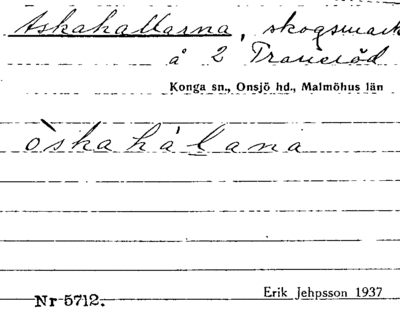 Askahallarna, skogsmark
å 2 Traneröd
Konga sn., Onsjö hd., Malmöhus län
òskahàlana
Nr 5712.
Erik Jehpsson 1937